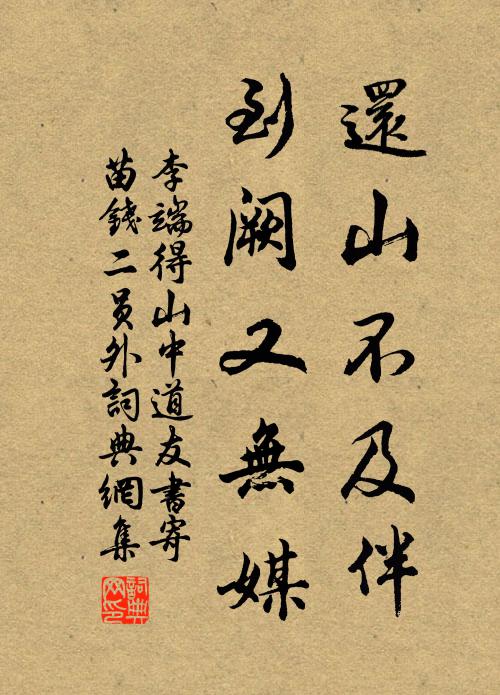 還山不及伴
到闕又無媒
李端得山中道友書寄
苗錢二員外詞典網集
詞典
网印